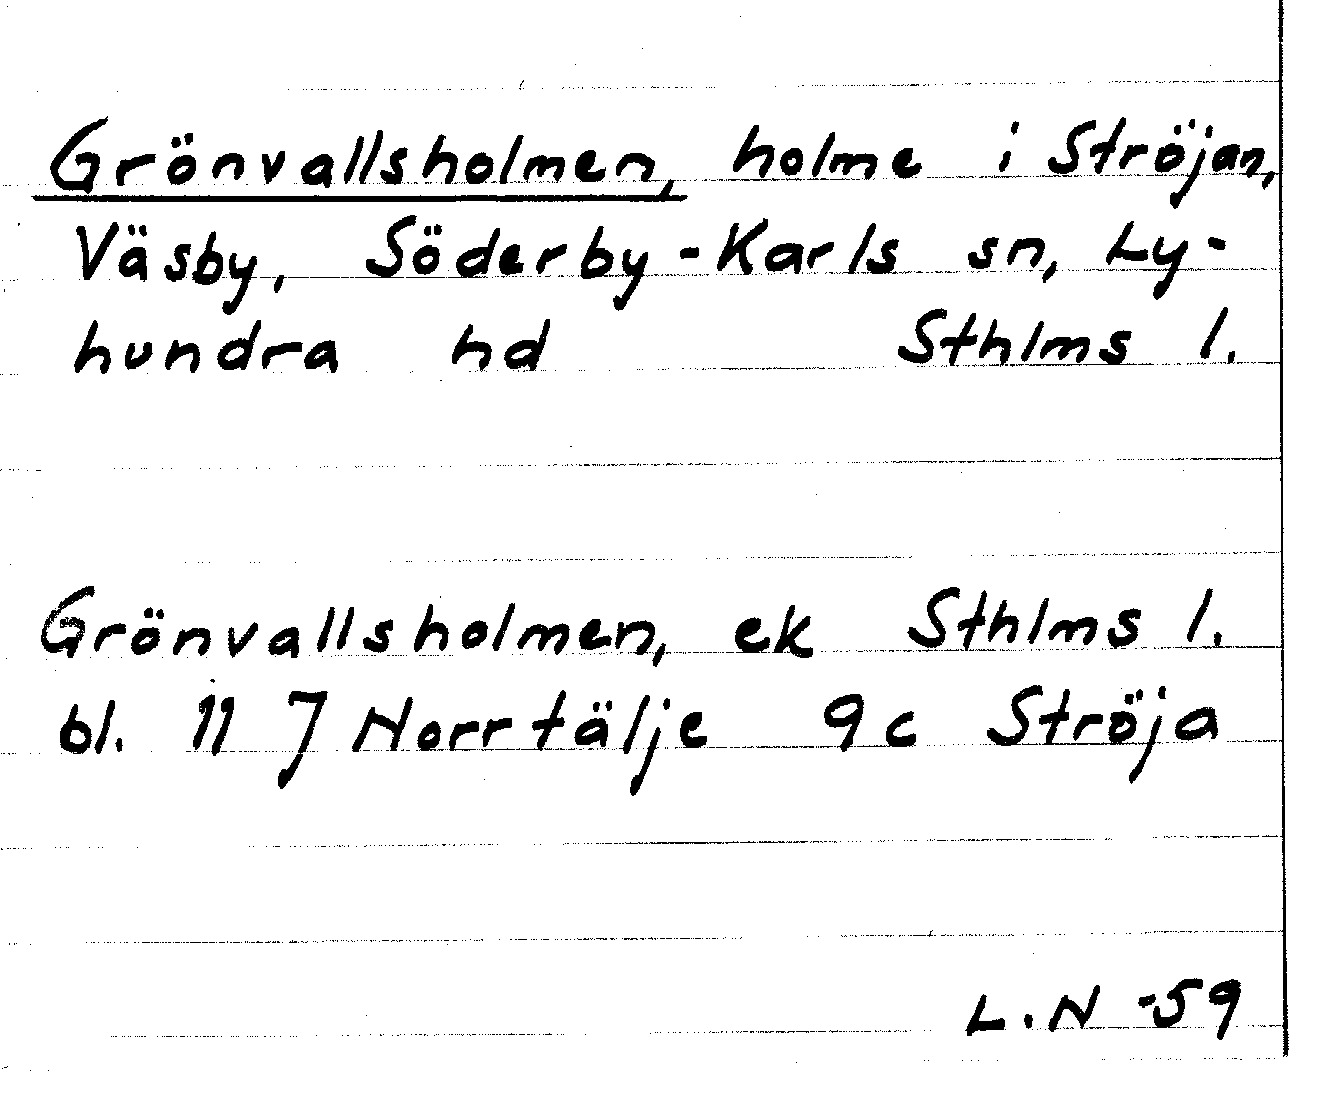 Grönvallsholmen, holme i Ströjan,
Väsby, Söderby-Karls sn, Ly-
hundra hd Sthlms l.
Grönvallsholmen, ek Sthlms l.
bl. 11 J Norrtälje 9c Ströja
L.N -59